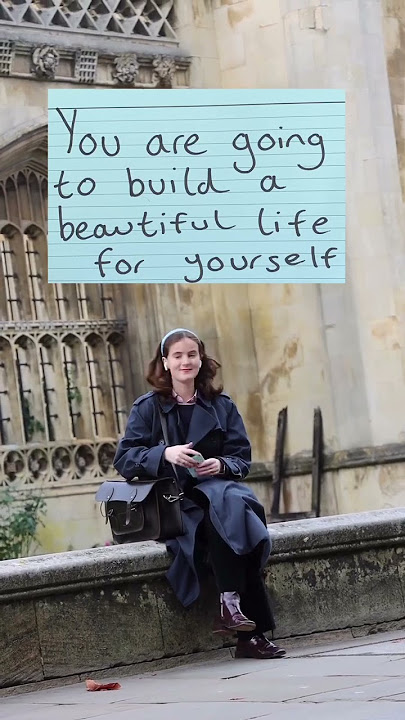 You are going
to build a
beautiful life
for yourself